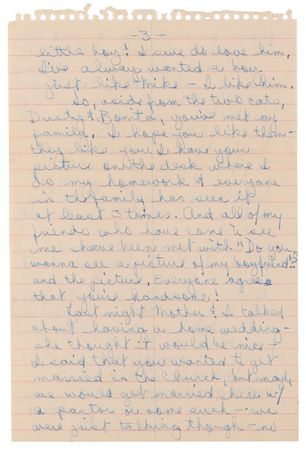 -3-
little boy! I sure do love him.
I've always wanted a boy
just like Mike - I like him.
So, aside from the two cats,
Dusty & Bonita, you've met my
family. I hope you like them -
they like you. I have your
picture on the desk where I
do my homework & everyone
in the family has seen it
at least 3 times. And all of my
friends who have come to see
me have been met with "Do you
wanna see a picture of my boyfriend?"
and the picture. Everyone agrees
that you're handsome!
Last night Mother & I talked
about having a home wedding -
she thought it would be nice.
I said that you wanted to get
married in the Church, but maybe
we would get married here w/
a pastor or some such - we
were just talking though - no